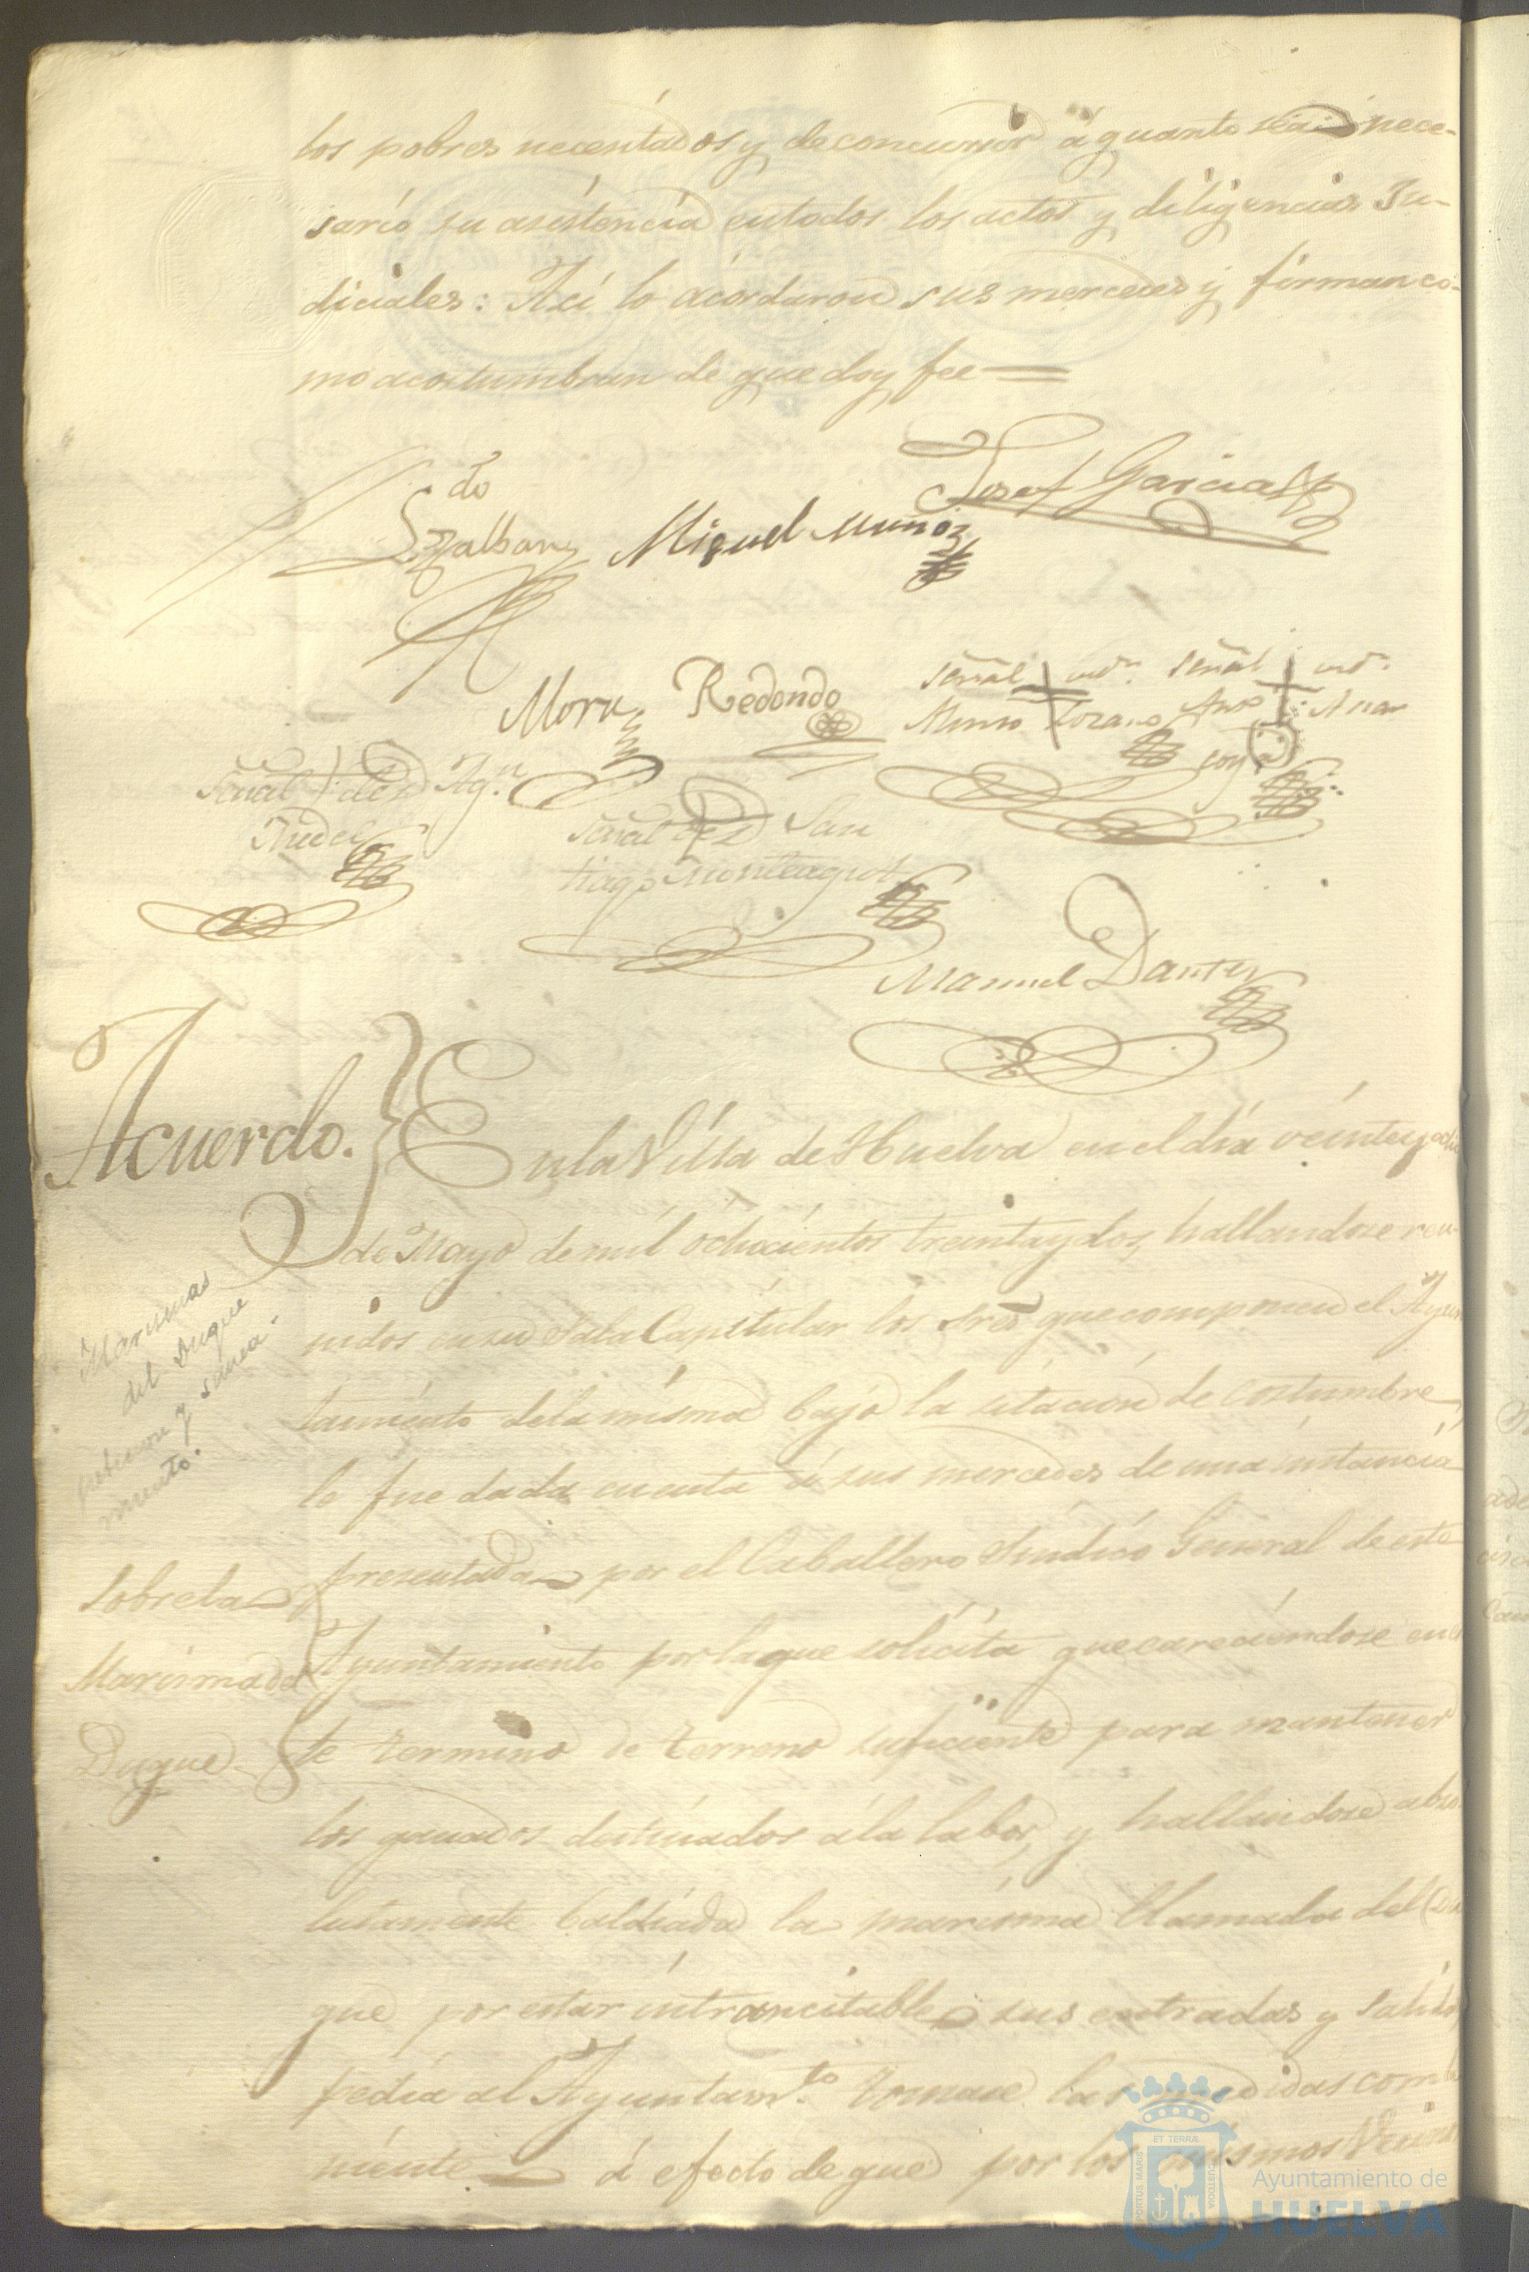 los pobres necesitados y de concurrir á quanto sea nece-
sario su asistencia en todos los actos y diligencias Ju-
diciales: Así lo acordaron sus mercedes y firman co-
mo acostumbran de que doy fee =
Josef Garcia
Miguel Muñoz
Mora Redondo
Señal
Alonso Lozano
Señal
Señal de Agn.
Señal de San
tiago Monteagud
Manuel Dante
Acuerdo. En la Villa de Huelva en el dia veinte y ocho
de Mayo de mil ochocientos treinta y dos, hallandose reu-
nidos en su Sala Capitular los Sres que componen el Ayun
tamiento de la misma bajo la sitacion de costumbre,
le fue dada cuenta á sus mercedes de una instancia
presentada por el Caballero Sindico General de este
Ayuntamiento por la que solicita que careciendose en es
te termino de terreno suficiente para mantener
los ganados destinados á la labor, y hallandose abso
lutamente baldiada la marisma llamada del Du
que por estar intrancitables sus entradas y salidas
pedia al Ayuntamto. tomase las medidas combe
niente á efecto de que por los mismos Vecinos
Marismas
del Duque
peticion y sanea-
miento.
Sobre la
Marisma del
Duque
ET TERRÆ
PORTUS MARIS
CUSTODIA
Ayuntamiento de
HUELVA